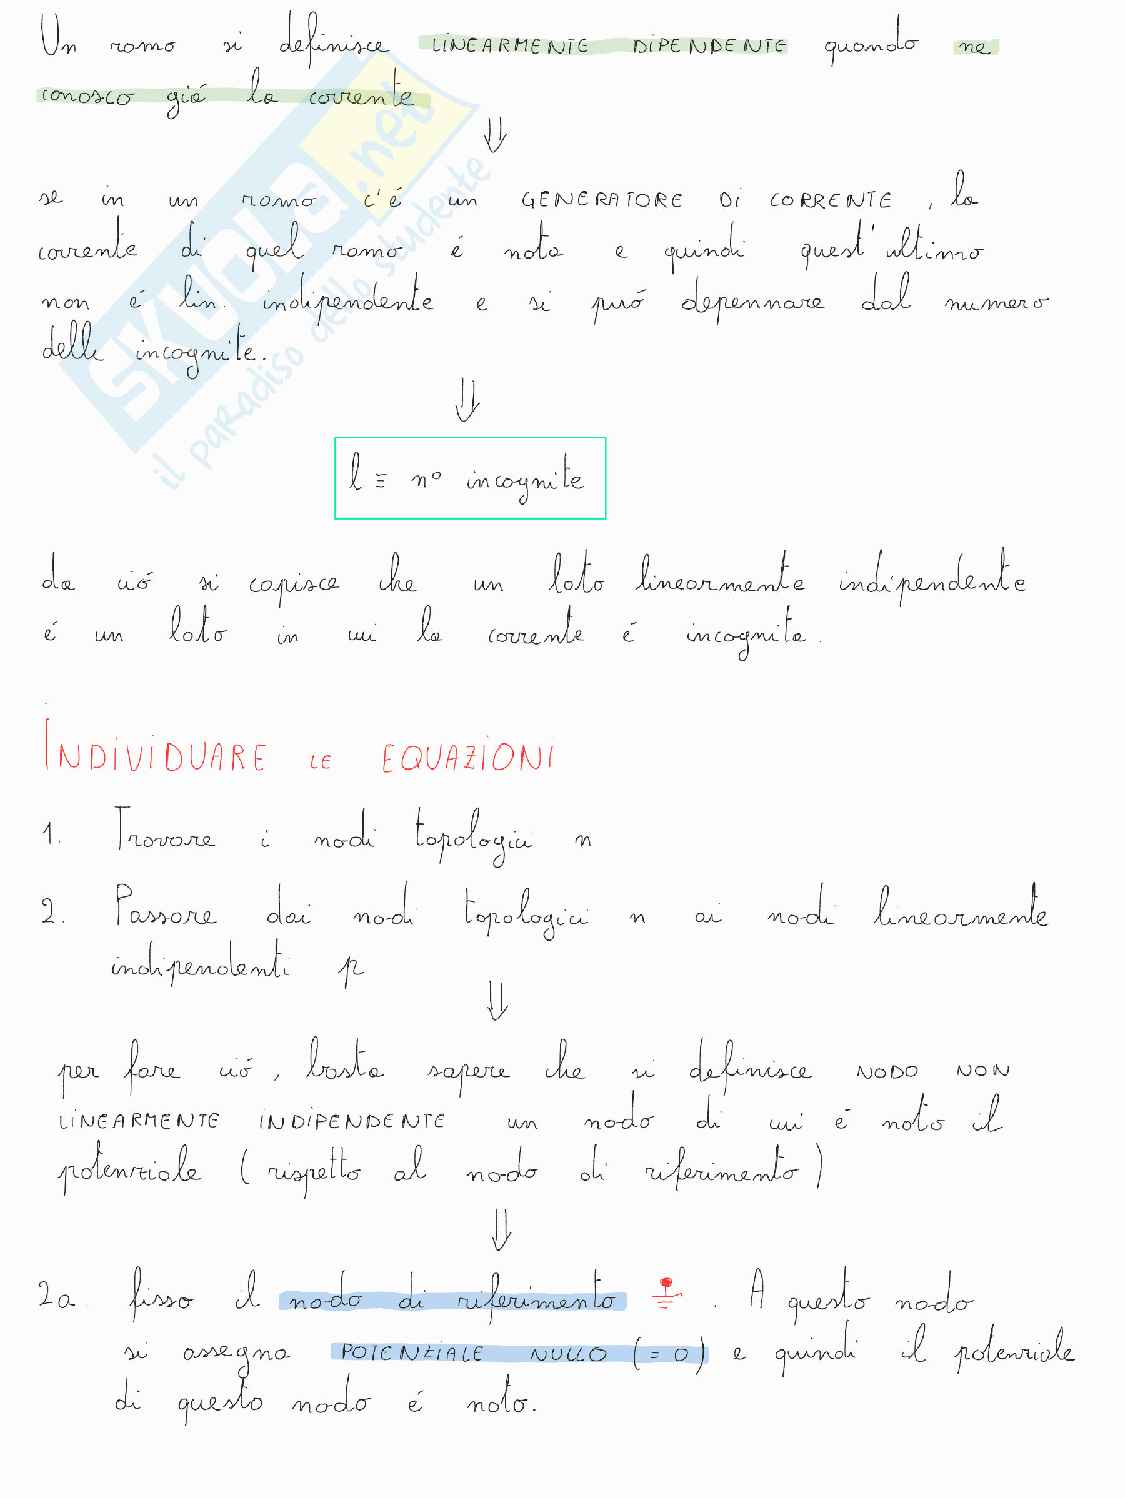 Un ramo si definisce LINEARMENTE DIPENDENTE quando ne
conosco giá la corrente
⇓
se in un ramo c'é un GENERATORE DI CORRENTE, la
corrente di quel ramo é nota e quindi quest'ultimo
non é lin. indipendente e si puó depennare dal numero
delle incognite.
⇓
l ≡ n° incognite
da ció si capisce che un lato linearmente indipendente
é un lato in cui la corrente é incognita.
INDIVIDUARE LE EQUAZIONI
1. Trovare i nodi topologici n
2. Passare dai nodi topologici n ai nodi linearmente
indipendenti p
⇓
per fare ció, basta sapere che si definisce NODO NON
LINEARMENTE INDIPENDENTE un nodo di cui é noto il
potenziale (rispetto al nodo di riferimento)
⇓
2a. fisso il nodo di riferimento . A questo nodo
si assegna POTENZIALE NULLO (=0) e quindi il potenziale
di questo nodo é noto.
SKUOLA.net
il paradiso dello studente